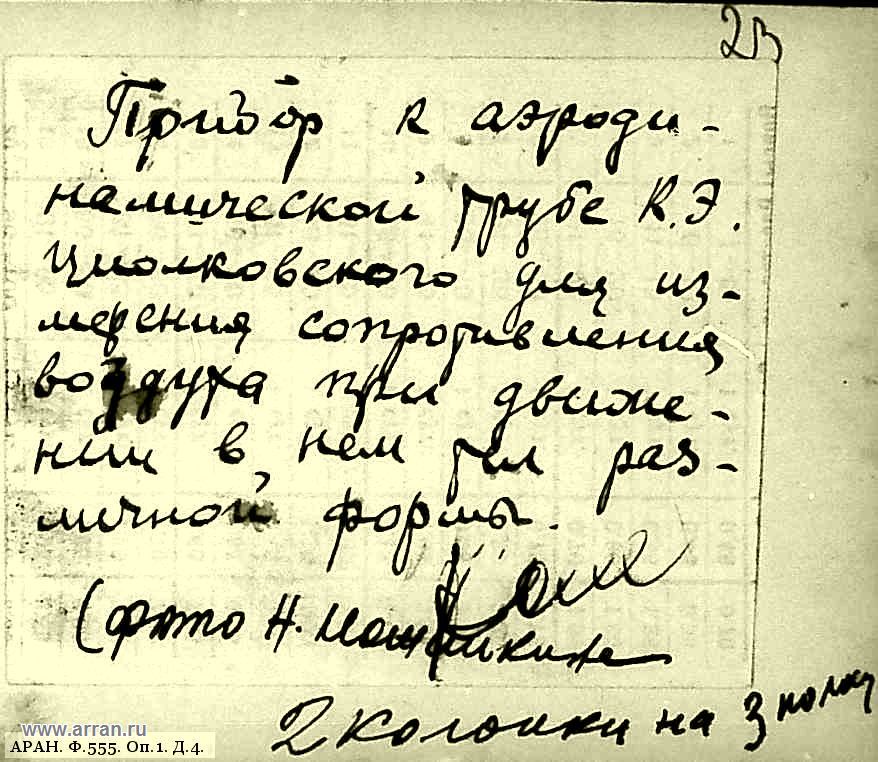 23
Прибор к аэроди-
намической трубе К.Э.
Циолковского для из-
мерения сопротивления
воздуха при движе-
нии в нем тел раз-
личной формы.
(фото Н.
2 колонки на 3
www.arran.ru
АРАН. Ф.555. Оп.1. Д.4.